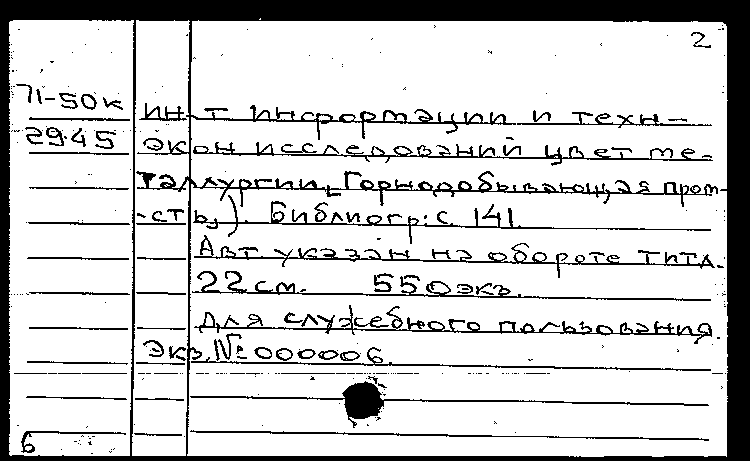 2
71-50к ин-т информации и техн-
2945 экон исследований цвет ме-
таллургии, Горнодобывающая пром-
-сть,). Библиогр: с 141.
Авт. указан на обороте титл.
22 см. 550 экз.
Для служебного пользования.
Экз. № 000006.
6